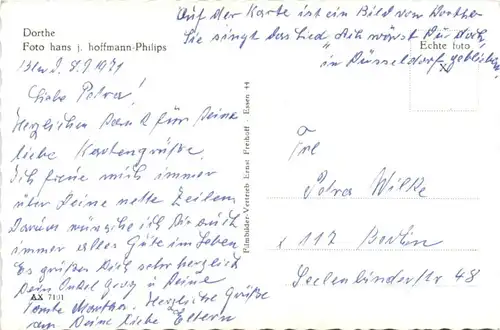 Dorthe
Foto hans j. hoffmann-Philips
Auf der Karte ist ein Bild von Dorthe
Sie singt das Lied „Ach wärst Du doch
in Düsseldorf geblieben"
Echte foto
8.7.1971
Liebe Petra!
Herzlichen Dank für Deine
liebe Kartengrüße.
Ich freue mich immer
über Deine nette Zeilen
Darum wünsche ich Dir auch
immer alles Gute im Leben
Es grüßen Dich sehr herzlich
Dein Onkel Georg u Deine
Tante Martha. Herzliche Grüße
an Deine liebe Eltern
AX 7101
Filmbilder-Vertrieb Ernst Freihoff - Essen 44
Frl
Petra Wilke
x 117 Berlin
Seelenbinderstr 48